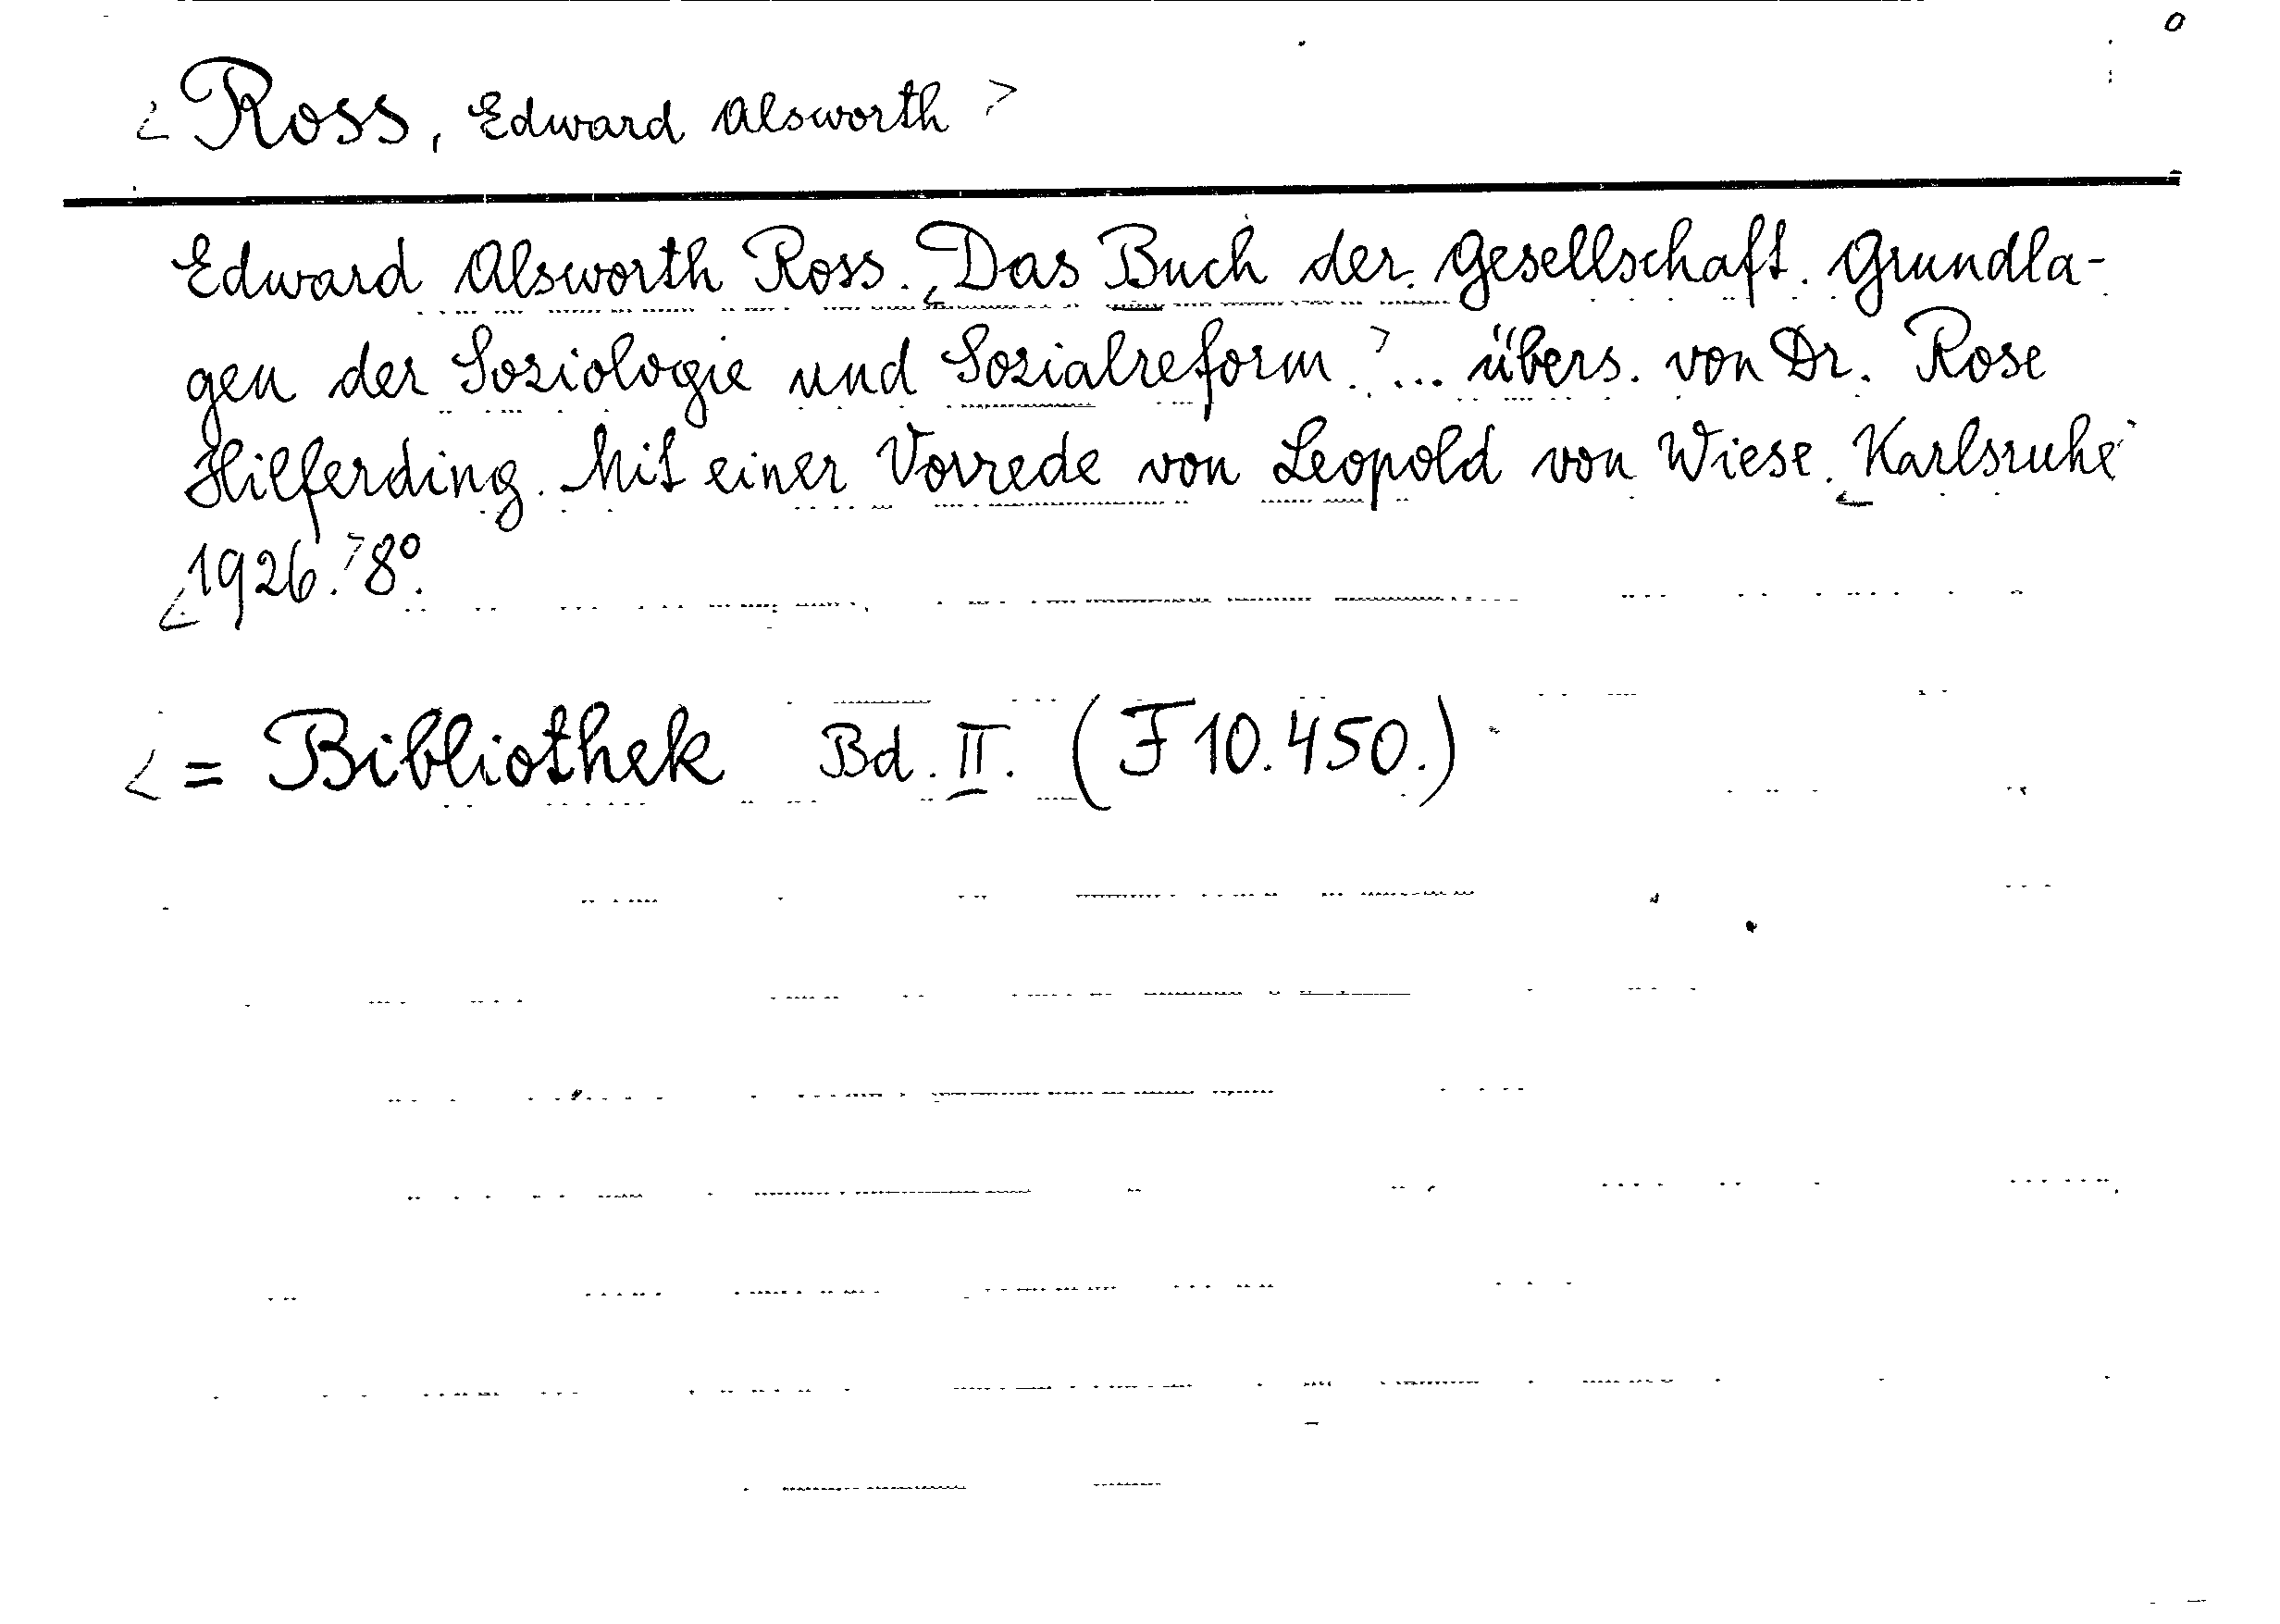 <Ross, Edward Alsworth>
Edward Alsworth Ross. <Das Buch der Gesellschaft. Grundla-
gen der Soziologie und Sozialreform.> ... übers. von Dr. Rose
Hilferding. Mit einer Vorrede von Leopold von Wiese. <Karlsruhe>
<1926.> 8°.
<= Bibliothek Bd. II. (F 10.450.)